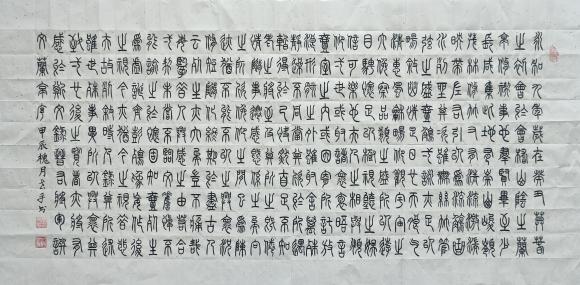 永和九年歲在癸丑暮春
之初會于會稽山陰之蘭
亭脩禊事也群賢畢至少
長咸集此地有崇山峻領
茂林脩竹又有清流激湍
映帶左右引以為流觴曲
水列坐其次雖無絲竹管
弦之盛一觴一詠亦足以
暢敘幽情是日也天朗氣
清惠風和暢仰觀宇宙之
大俯察品類之盛所以遊
目騁懷足以極視聽之娛
信可樂也夫人之相與俯
仰一世或取諸懷抱悟言
一室之內或因寄所託放
浪形骸之外雖趣舍萬殊
靜躁不同當其欣於所遇
暫得於己快然自足不知
老之將至及其所之既倦
情隨事遷感慨係之矣向
之所欣俛仰之間已為陳
迹猶不能不以之興懷況
脩短隨化終期於盡古人
云死生亦大矣豈不痛哉
每覽昔人興感之由若合
一契未嘗不臨文嗟悼不
能喻之於懷固知一死生
為虛誕齊彭殤為妄作後
之視今亦由今之視昔悲
夫故列敘時人錄其所述
雖世殊事異所以興懷其
致一也後之覽者亦將有
感於斯文
蘭亭序 甲辰槐月